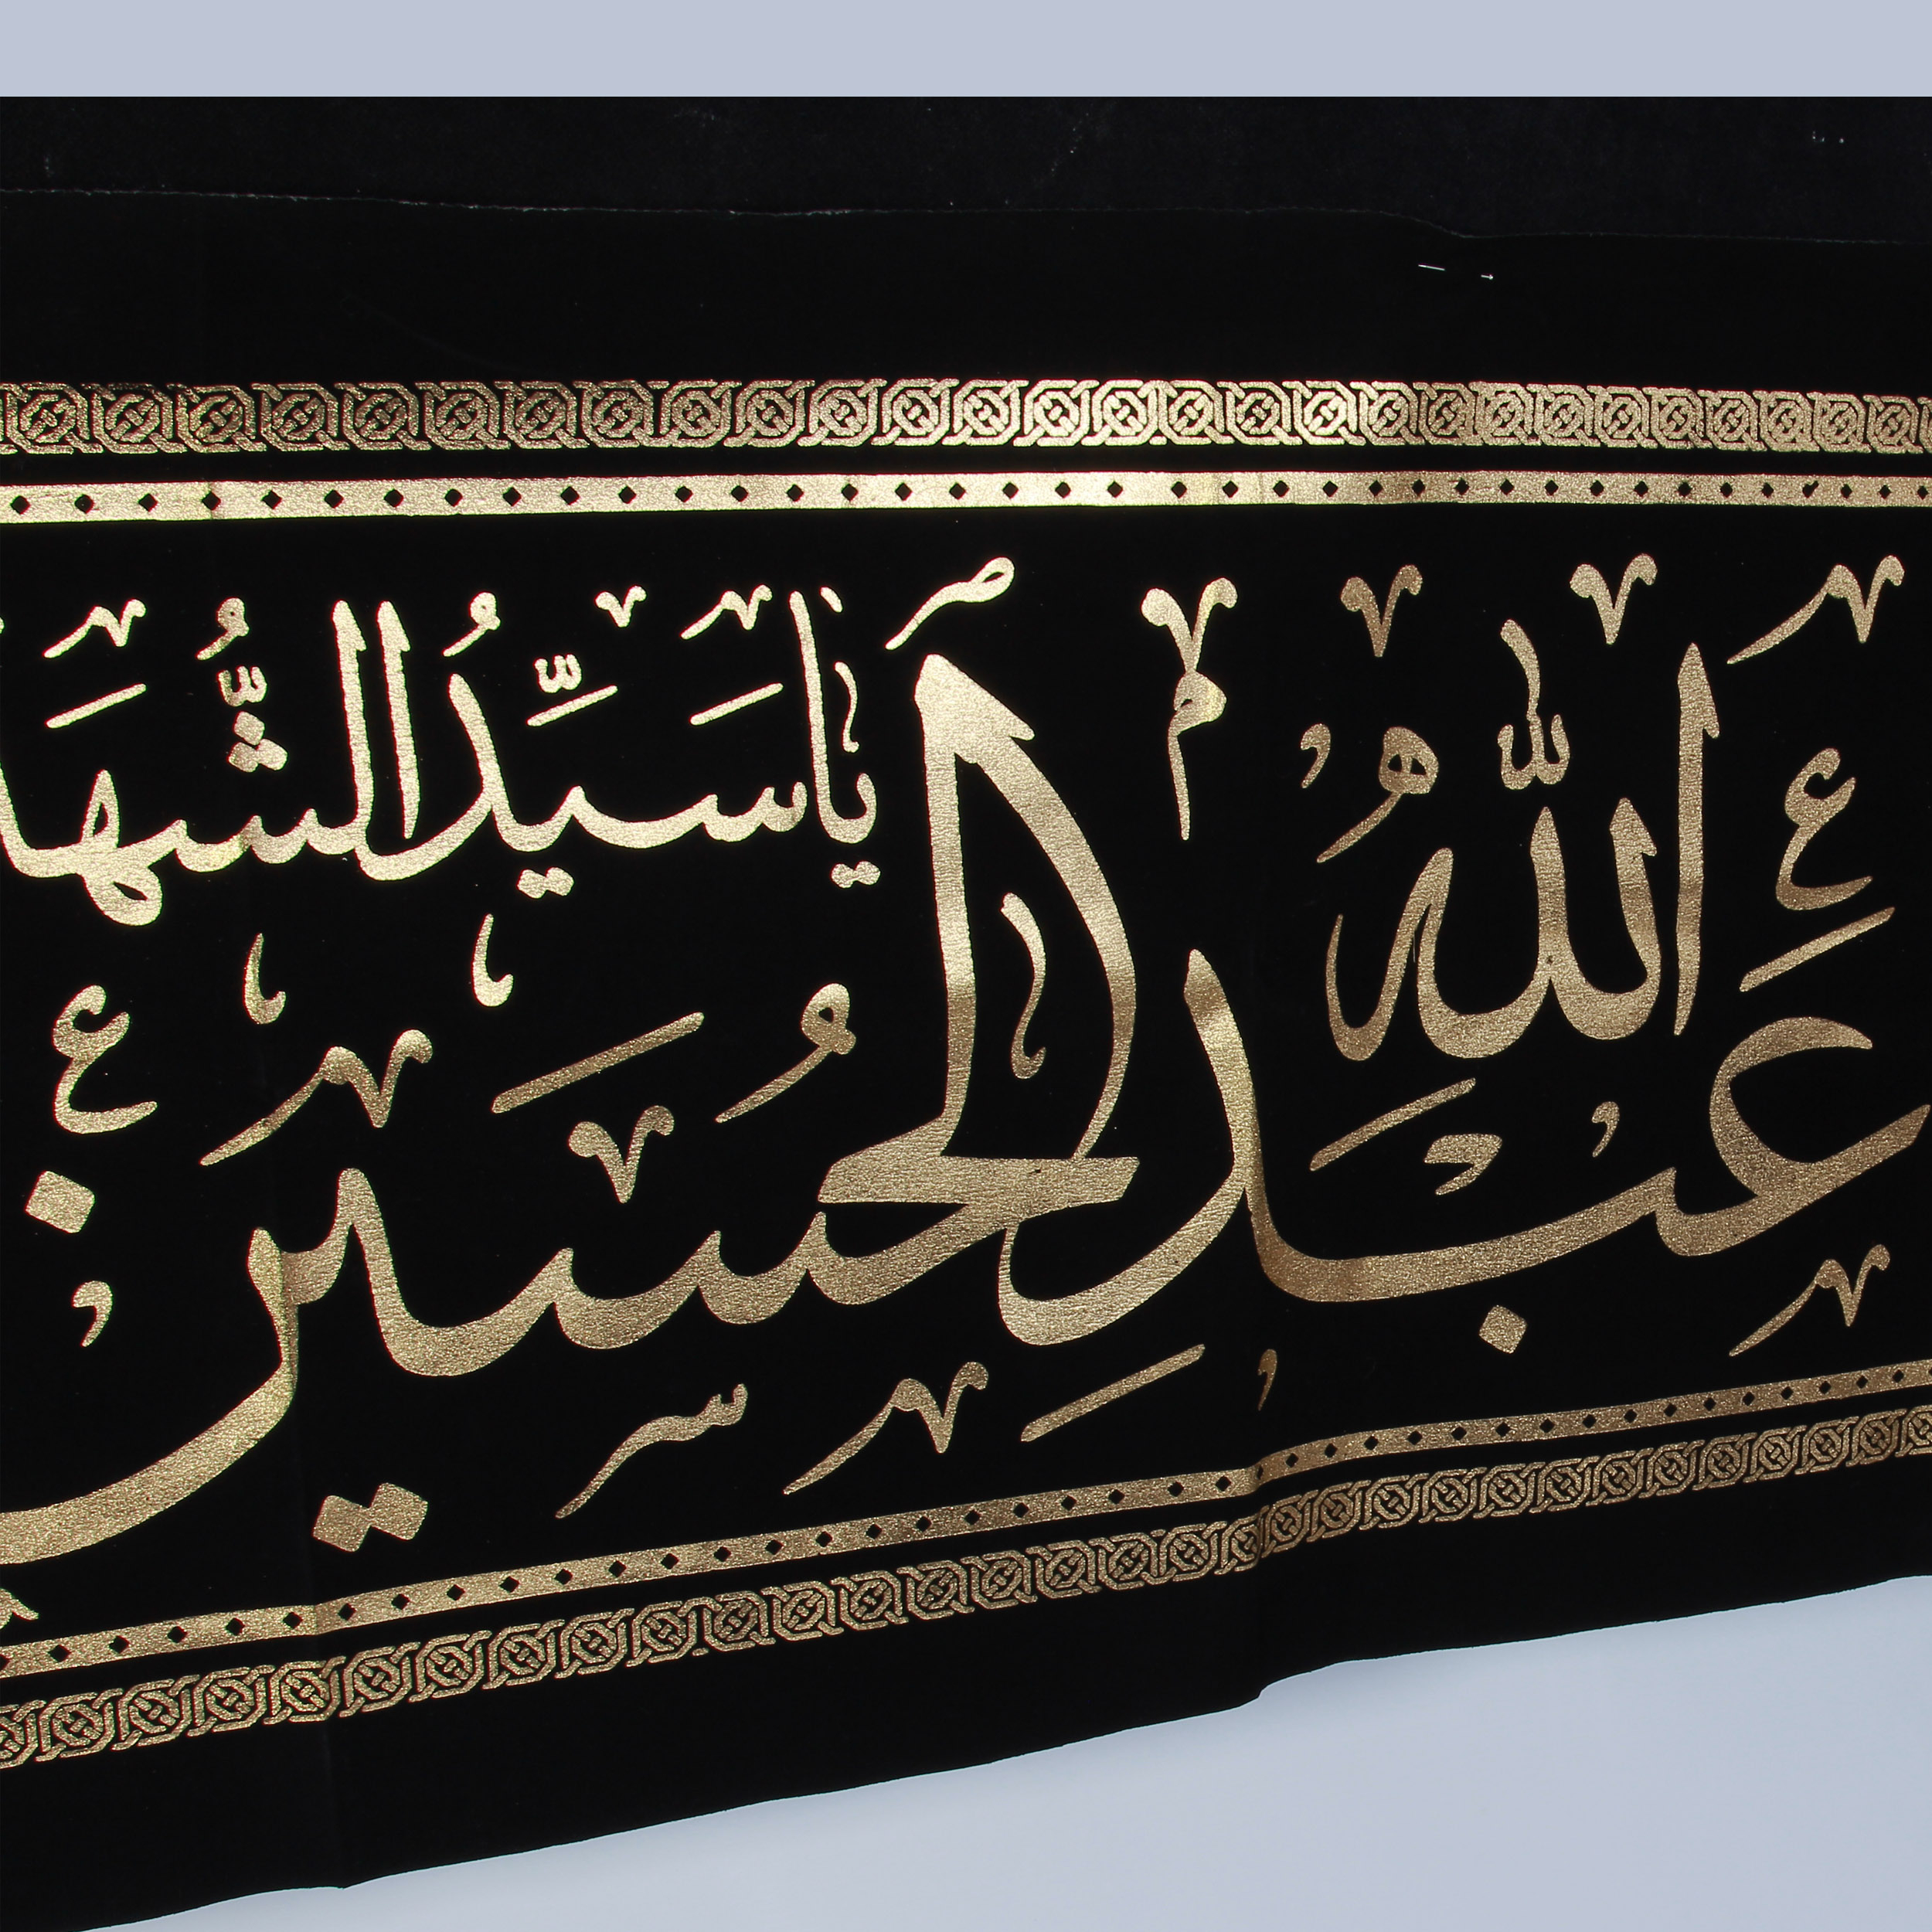 عَبْدِ اللهُ الْحُسَيْن
يَا سَيِّدُ الشُّهَدَ